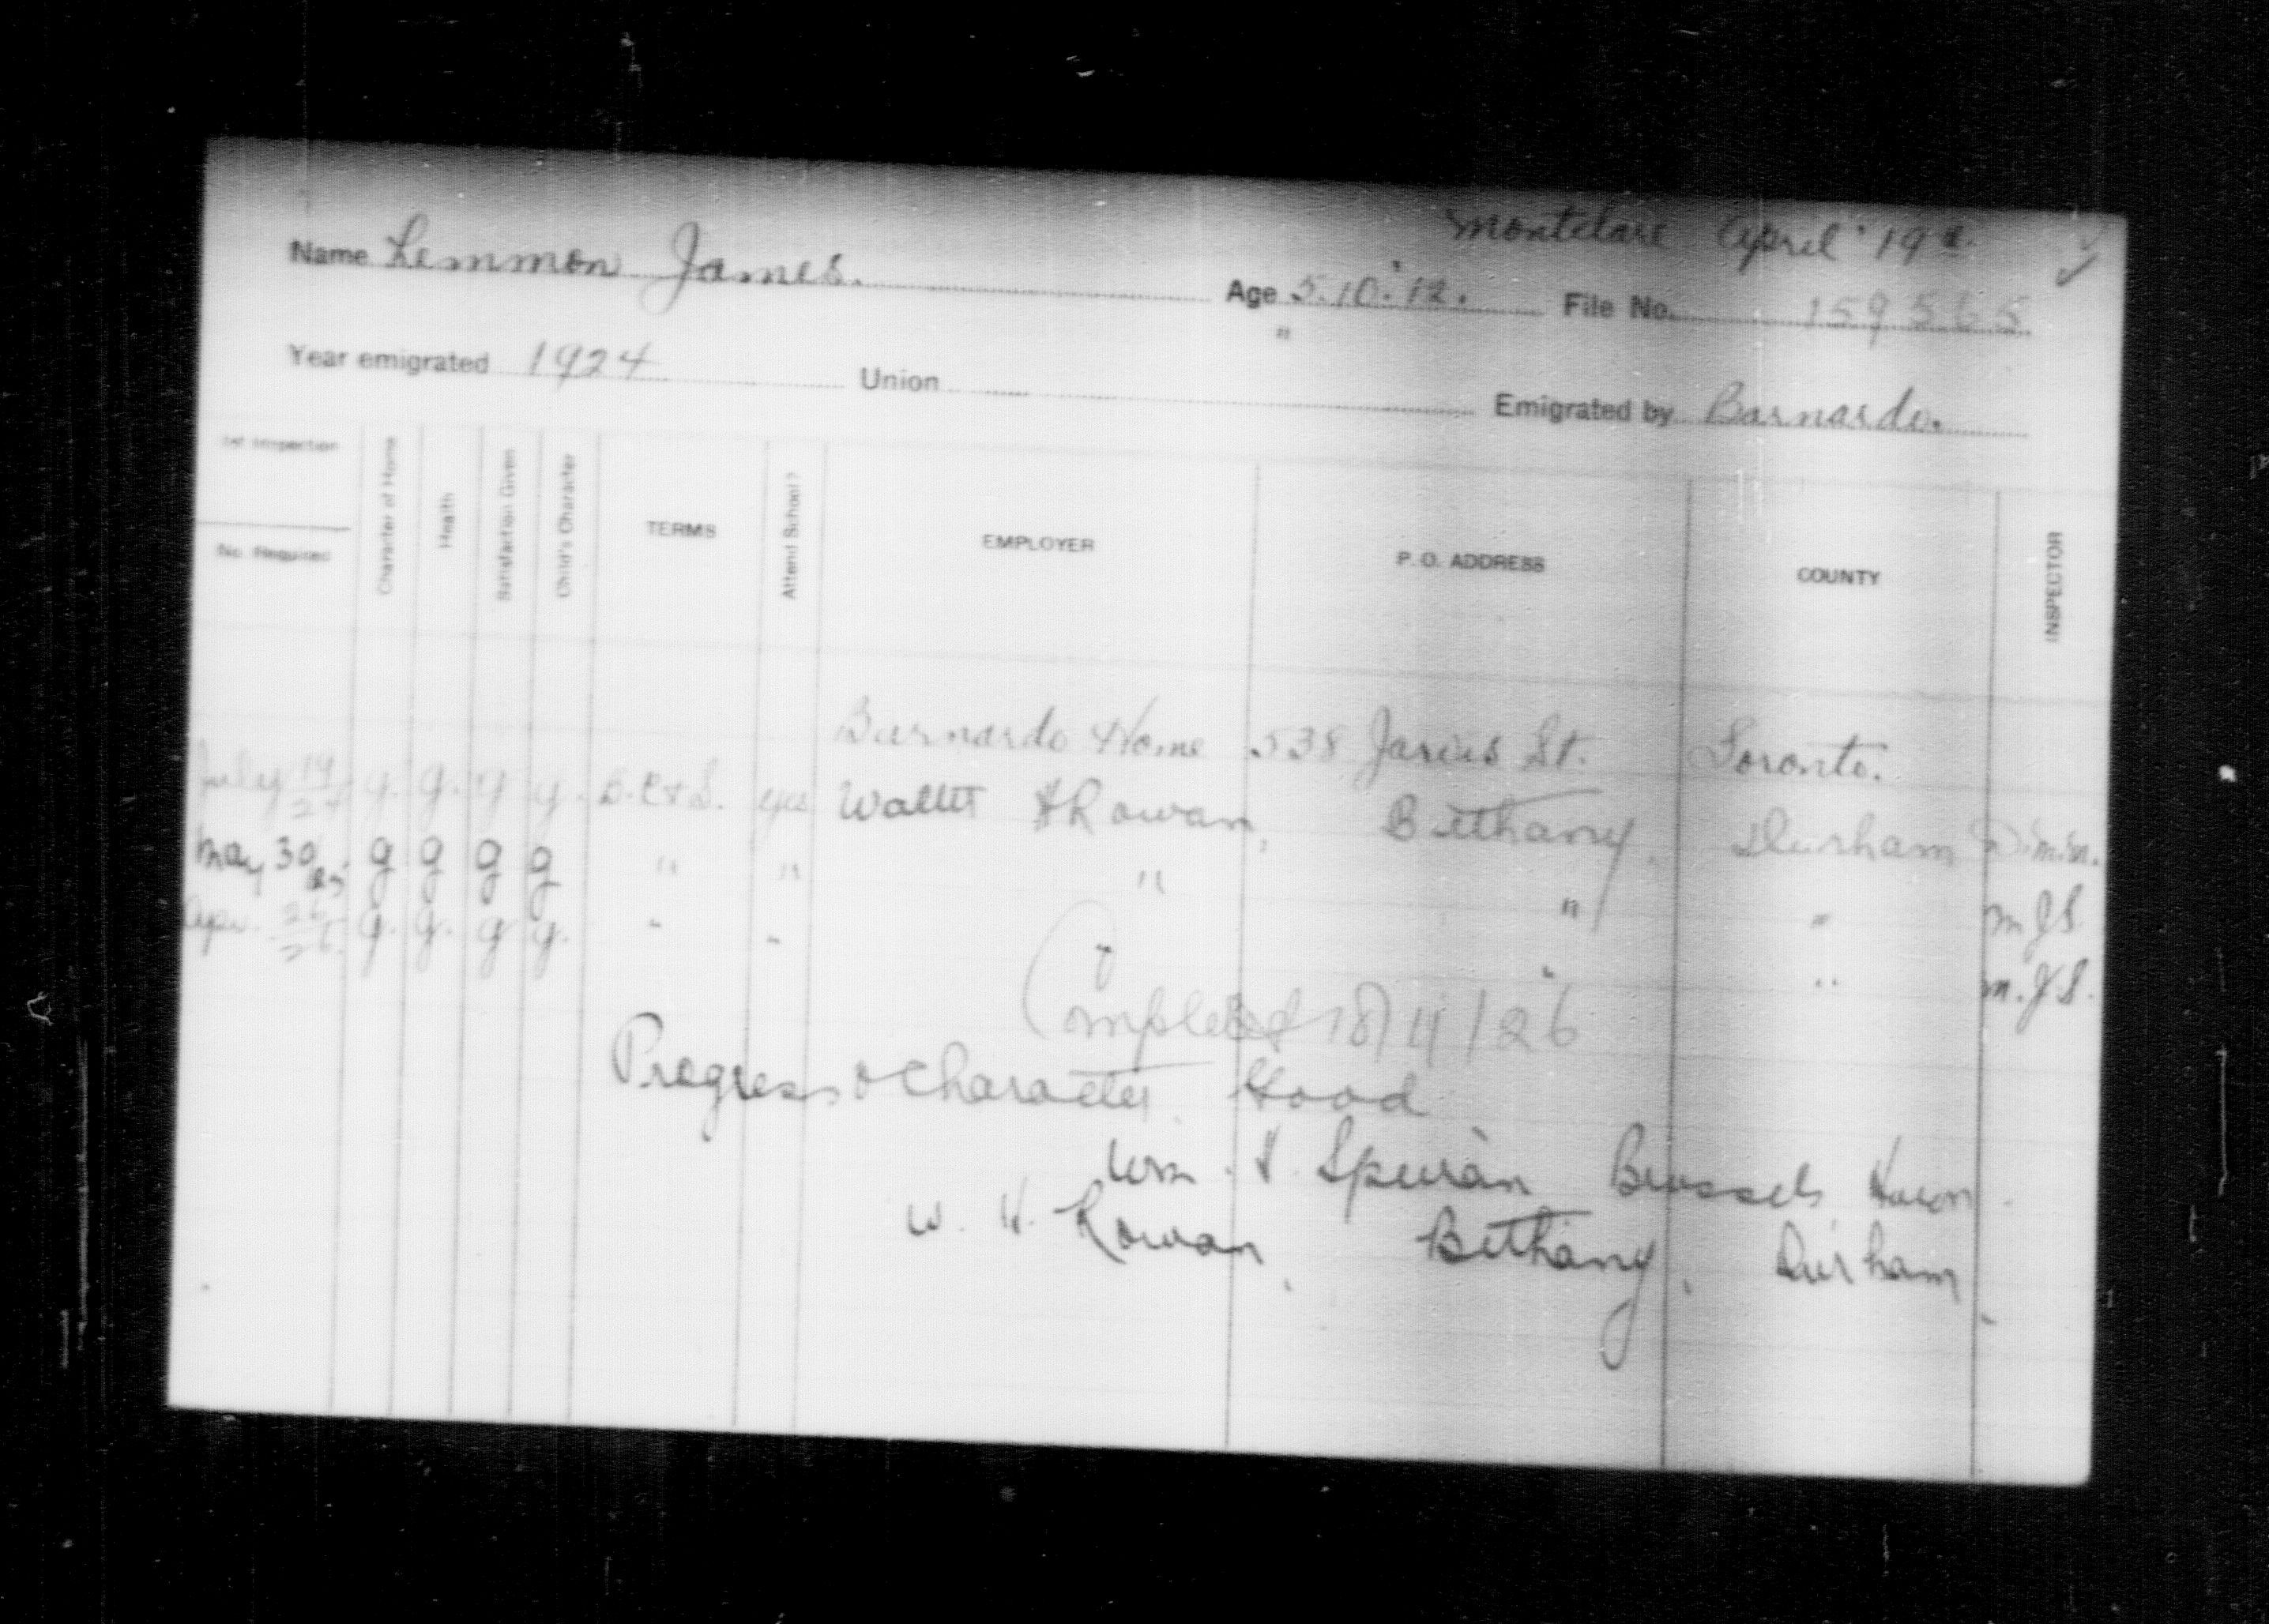 Montclare April 19th
Name Lemmon James. Age 5.10.12. File No. 159565
"
Year emigrated 1924 Union Emigrated by Barnardo.
1st Inspection
No. Required
Character of Home
Health
Satisfaction Given
Child's Character
TERMS
Attend School?
EMPLOYER
P. O. ADDRESS
COUNTY
INSPECTOR
Barnardo Home 538 Jarvis St. Toronto.
July 19/24 g. g. g g. B.C&S. yes Walter H Rowan, Bethany, Durham
May 30/25 g g g g " " " " " M.J.S.
Apr. 26/26 g. g. g g. " " " " " M.J.S.
Completed 18/11/26
Progress & Character. Good
Wm. H. Speiran Brussels Huron.
W. H. Rowan, Bethany, Durham,